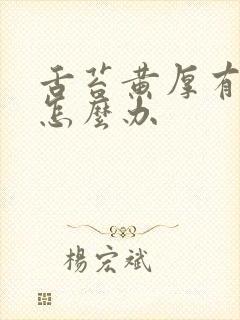 舌苔黄厚有
怎麼办
楊宏斌